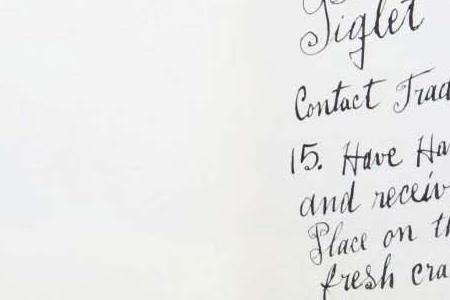 Piglet
Contact Trad
15. Have Ha
and receiv
Place on th
fresh cra